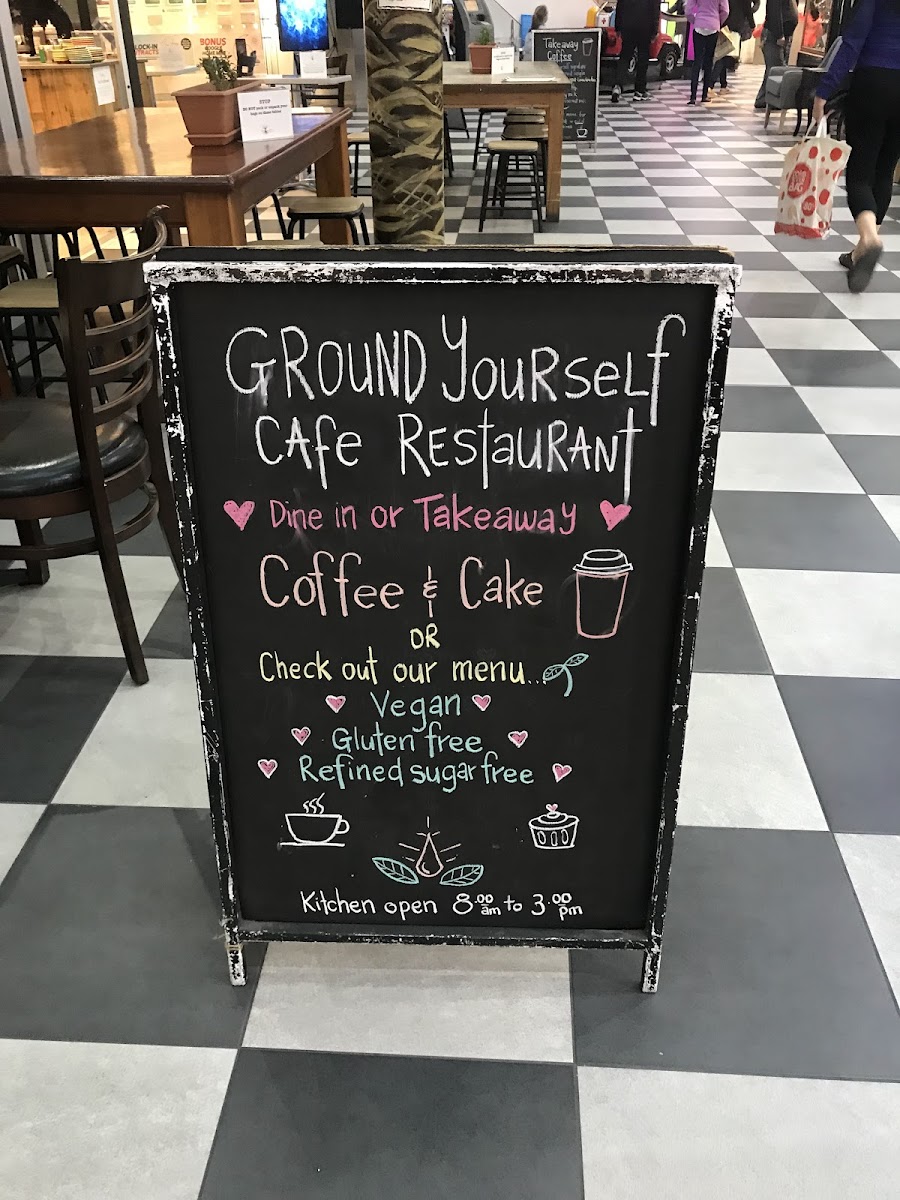 LOCK-IN
BONUS
STOP
Takeaway
Coffee
GROUND YOURSELF
CAFE RESTAURANT
Dine in or Takeaway
Coffee & Cake
OR
Check out our menu...
Vegan
Gluten free
Refined sugar free
Kitchen open 8.00am to 3.00pm